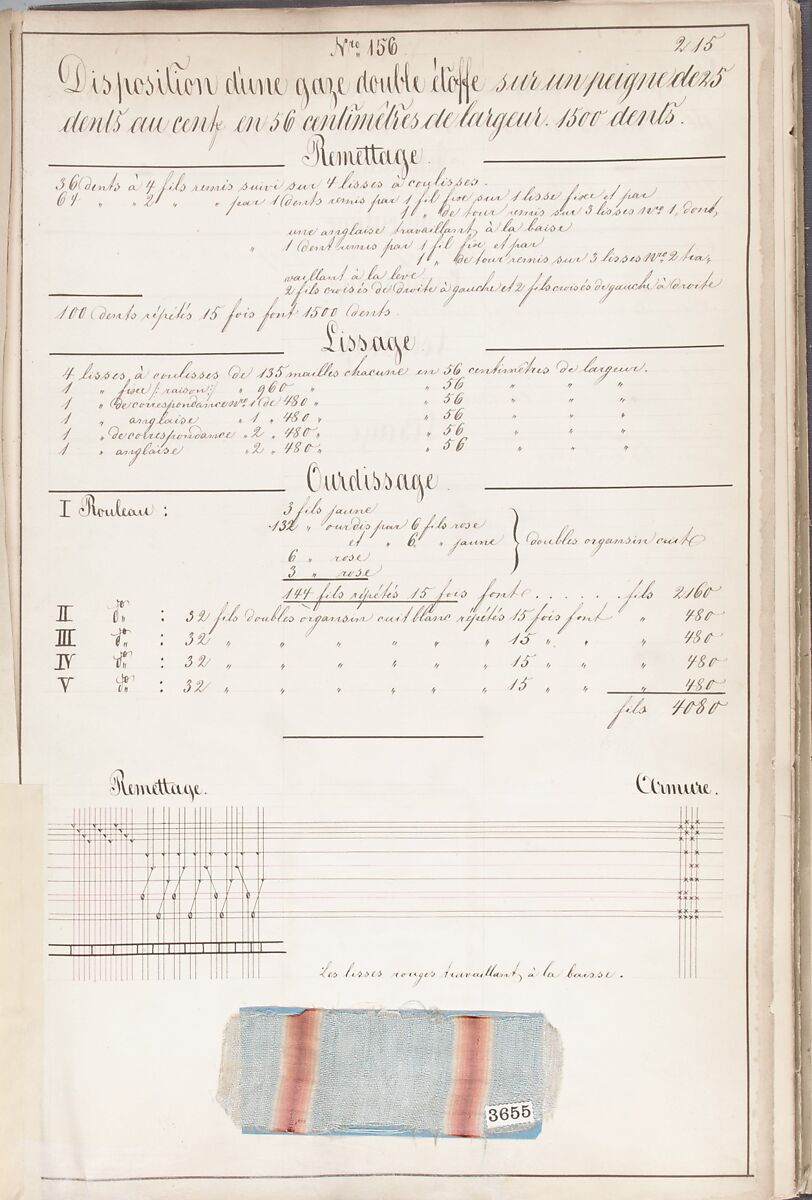 Nro 156
215
Disposition d'une gaze double étoffe sur un peigne de 25
dents au cent, en 56 centimètres de largeur. 1500 dents.
Remettage.
36 dents à 4 fils remis suivi sur 4 lisses à coulisses.
64 " " 2 " " par 1 dents remis par 1 fil fixe sur 1 lisse fixe et par
1 " de tour remis sur 3 lisses Nro 1, dont,
une anglaise travaillant, à la baisse
" 1 dent remis par 1 fil fix, et par
1 " de tour remis sur 3 lisses Nro 2 tra,
vaillant à la leve
2 fils croisés de droite à gauche et 2 fils croisés de gauche à droite
100 dents répétés 15 fois font 1500 dents.
Lissage.
4 lisses, à coulisses de 135 mailles chacune en 56 centimètres de largeur.
1 " fixe /: raison :/ " 960 " " 56 " " "
1 " de correspondance Nro 1 de 480 " " 56 " " "
1 " anglaise " 1 " 480 " " 56 " " "
1 " de correspondance " 2 " 480 " " 56 " " "
1 " anglaise " 2 " 480 " " 56 " " "
Ourdissage.
I Rouleau : 3 fils jaune
132 " ourdis par 6 fils rose
et " 6 " jaune
doubles organsin cuit
6 " rose
3 " rose
144 fils répétés 15 fois font . . . . . . fils 2160
II do : 32 fils doubles organsin cuit blanc répétés 15 fois font " 480
III do : 32 " " " " " " 15 " " " 480
IV do : 32 " " " " " " 15 " " " 480
V do : 32 " " " " " " 15 " " " 480
fils 4080
Remettage.
Armure.
Les lisses rouges travaillant, à la baisse.
3655